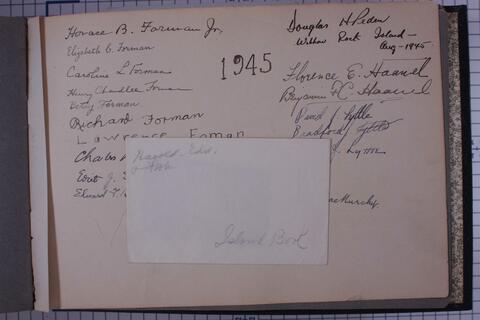 Horace B. Forman Jr.
Elizabeth C. Forman
Caroline L Forman
Henry Chandlee Forman
Betsy Forman
Richard Forman
Lawrence Forman
Charles
Edward
1945
Douglas H Peden
Willow Rock Island—
Aug—1945
Florence E. Haanel
Benjamin F.C. Haanel
David Lyttle
Bradford Lyttle
Lyttle
Harold. Edd.
Island Book